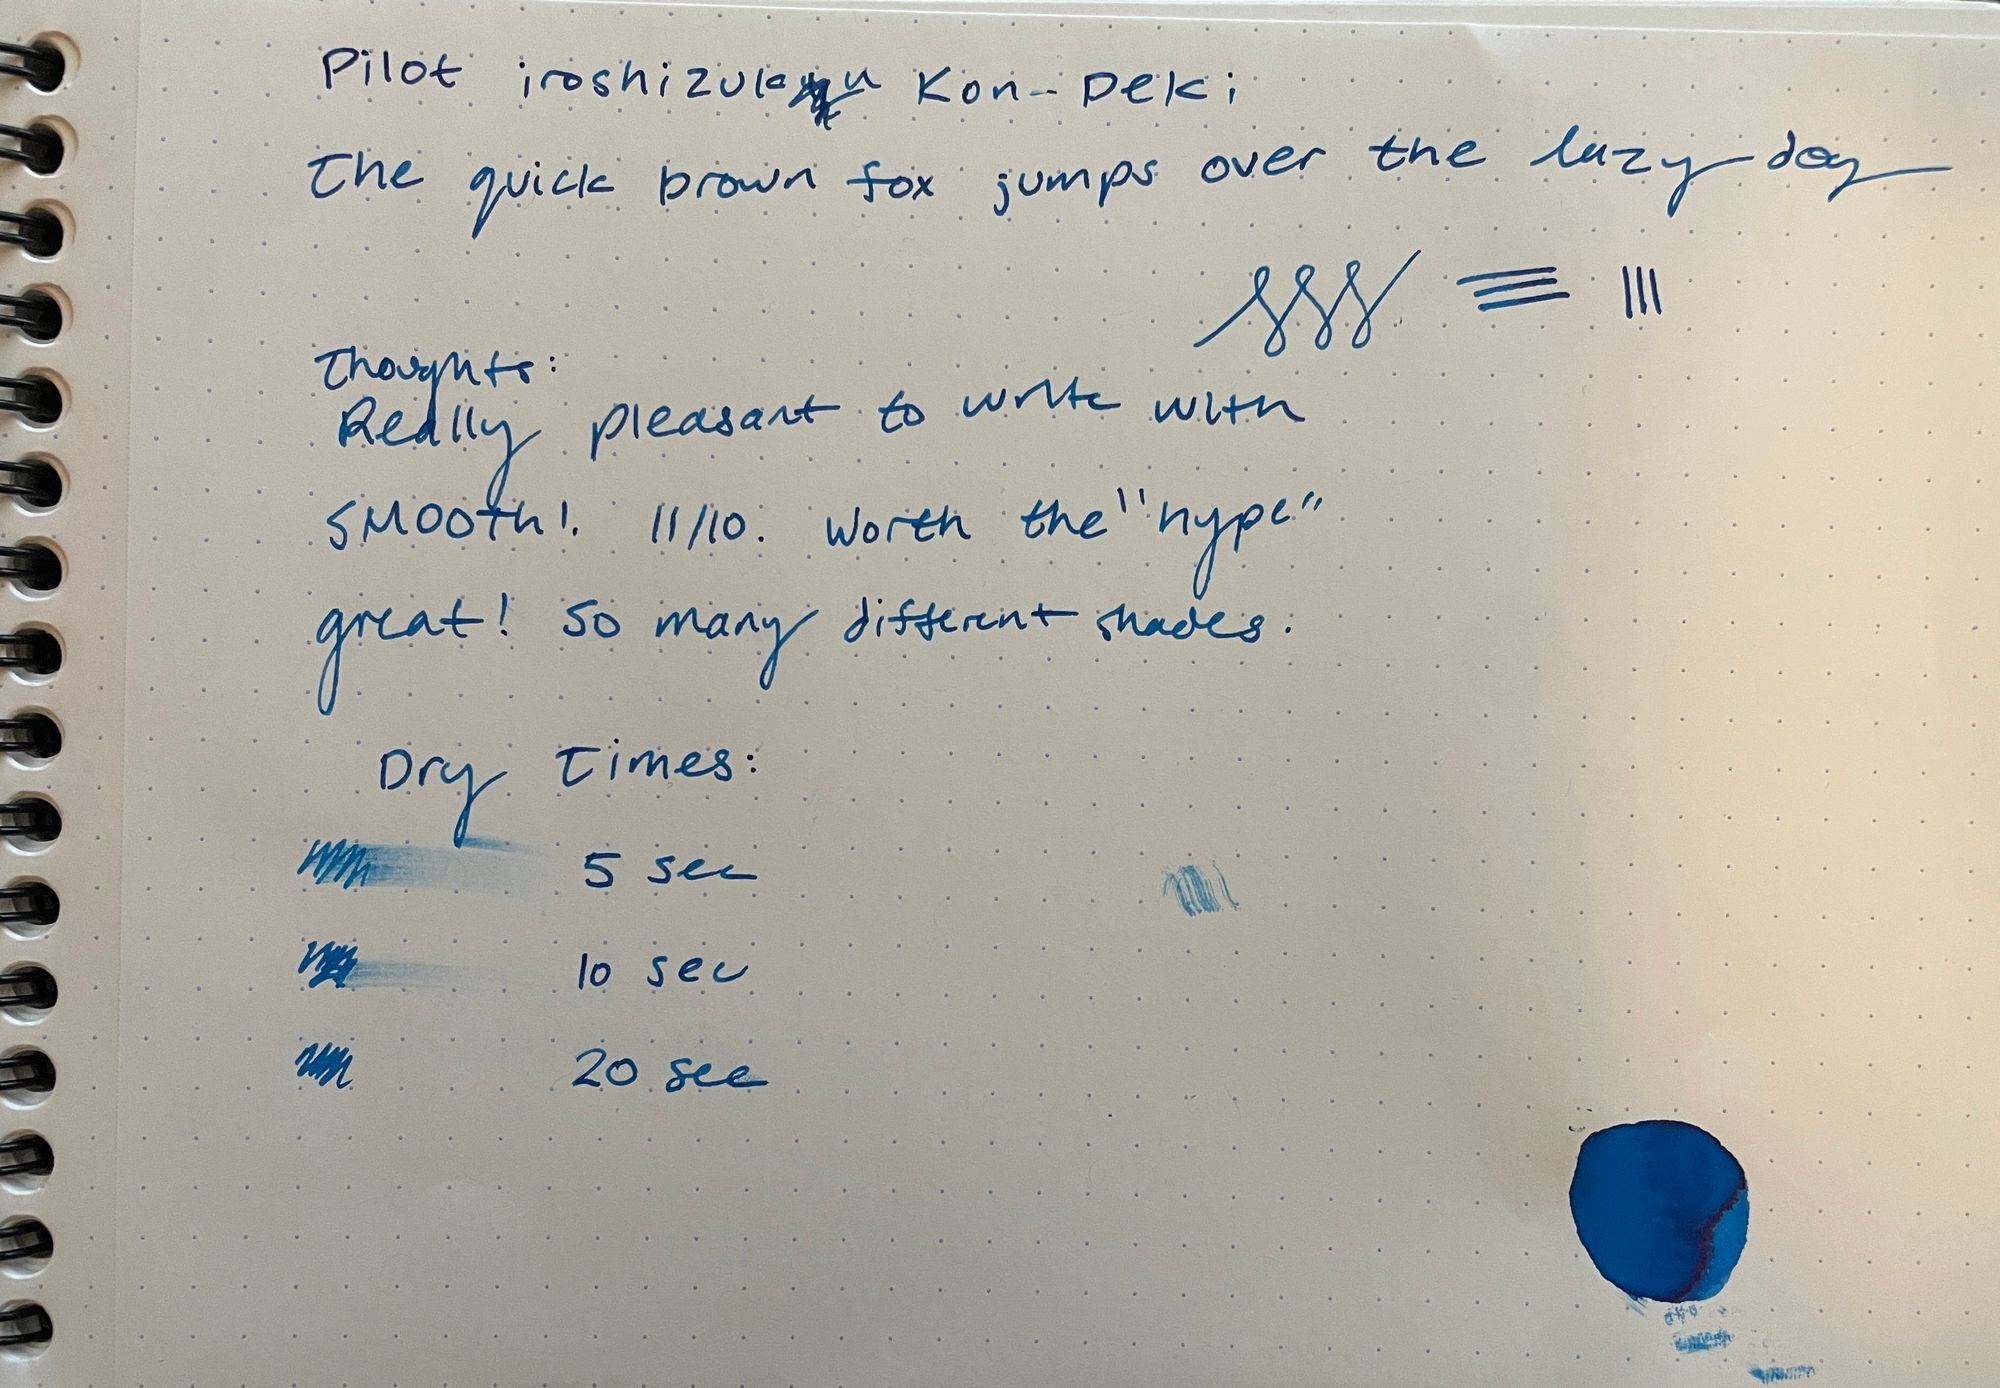 Pilot iroshizuku Kon-Peki
The quick brown fox jumps over the lazy dog
Thoughts:
Really pleasant to write with
SMOOTH! 11/10. Worth the "hype"
great! So many different shades.
Dry Times:
5 sec
10 sec
20 sec